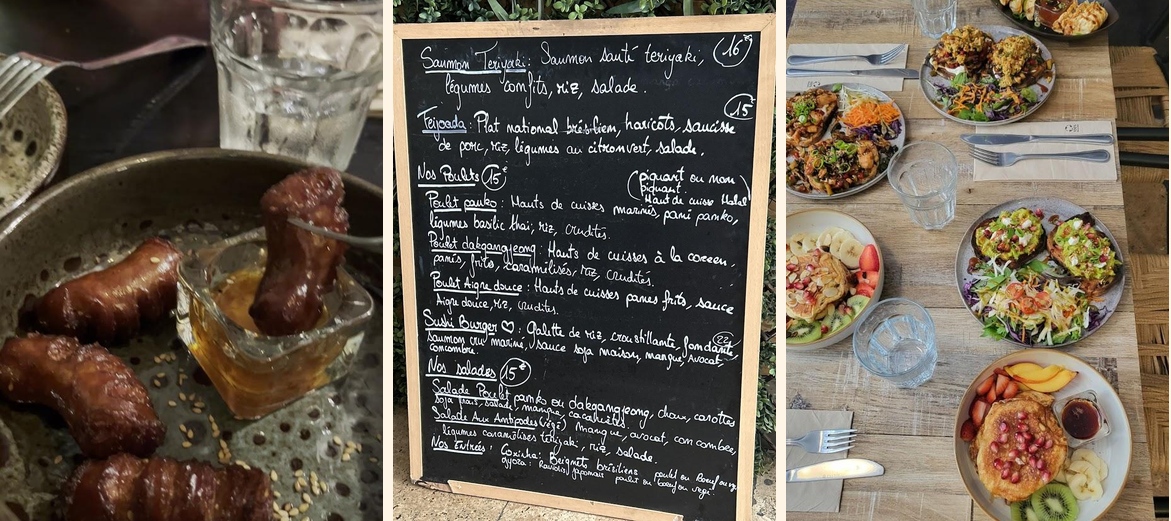 Saumon Teriyaki : Saumon sauté teriyaki, 16€
légumes confits, riz, salade.
15€
Feijoada : Plat national brésilien, haricots, saucisse
de porc, riz, légumes au citron vert, salade.
Nos Poulets 15€ (piquant ou non
piquant.
Haut de cuisse Halal)
Poulet panko : Hauts de cuisses marinés, pané panko,
légumes basilic thai, riz, crudités.
Poulet dakgangjeong : Hauts de cuisses à la coréen.
panés, frites, caramilisés, riz, crudités.
Poulet Aigre douce : Hauts de cuisses panés frits, sauce
Aigre douce, riz, crudités.
Sushi Burger ♡ : Galette de riz, croustillante, fondante 22
saumon cru mariné, sauce soja maison, mangue, avocat,
concombre.
Nos salades 15€
Salade Poulet panko ou dakgangjeong, choux, carottes
soja frais, salade, mangue, cacahuètes.
Salade Aux Antipodes (végé) mangue, avocat, concombre,
légumes caramélisés teriyaki, riz, salade.
Nos Entrés : Coxinha : Beignets brésiliens poulet ou bœuf ou végé
Gyoza : Raviolis japonais poulet ou bœuf ou végé